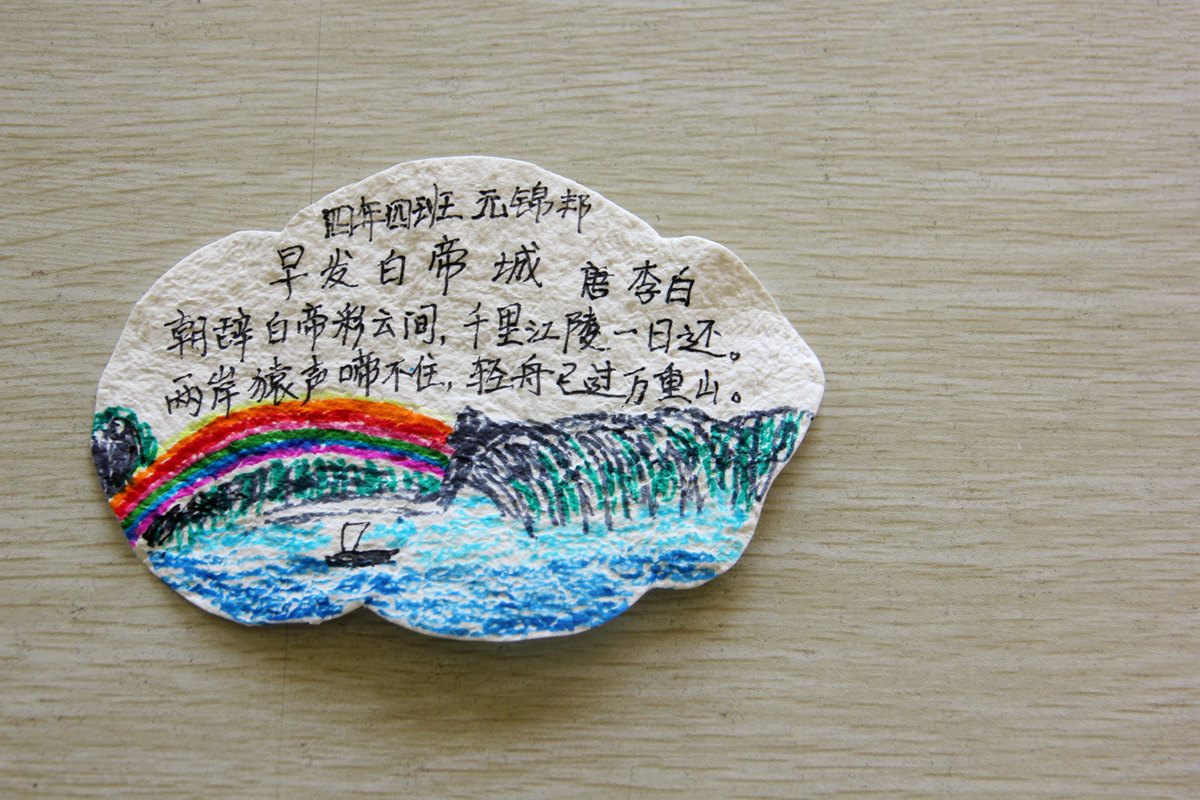 四年四班 元锦邦
早发白帝城 唐 李白
朝辞白帝彩云间,千里江陵一日还。
两岸猿声啼不住,轻舟已过万重山。